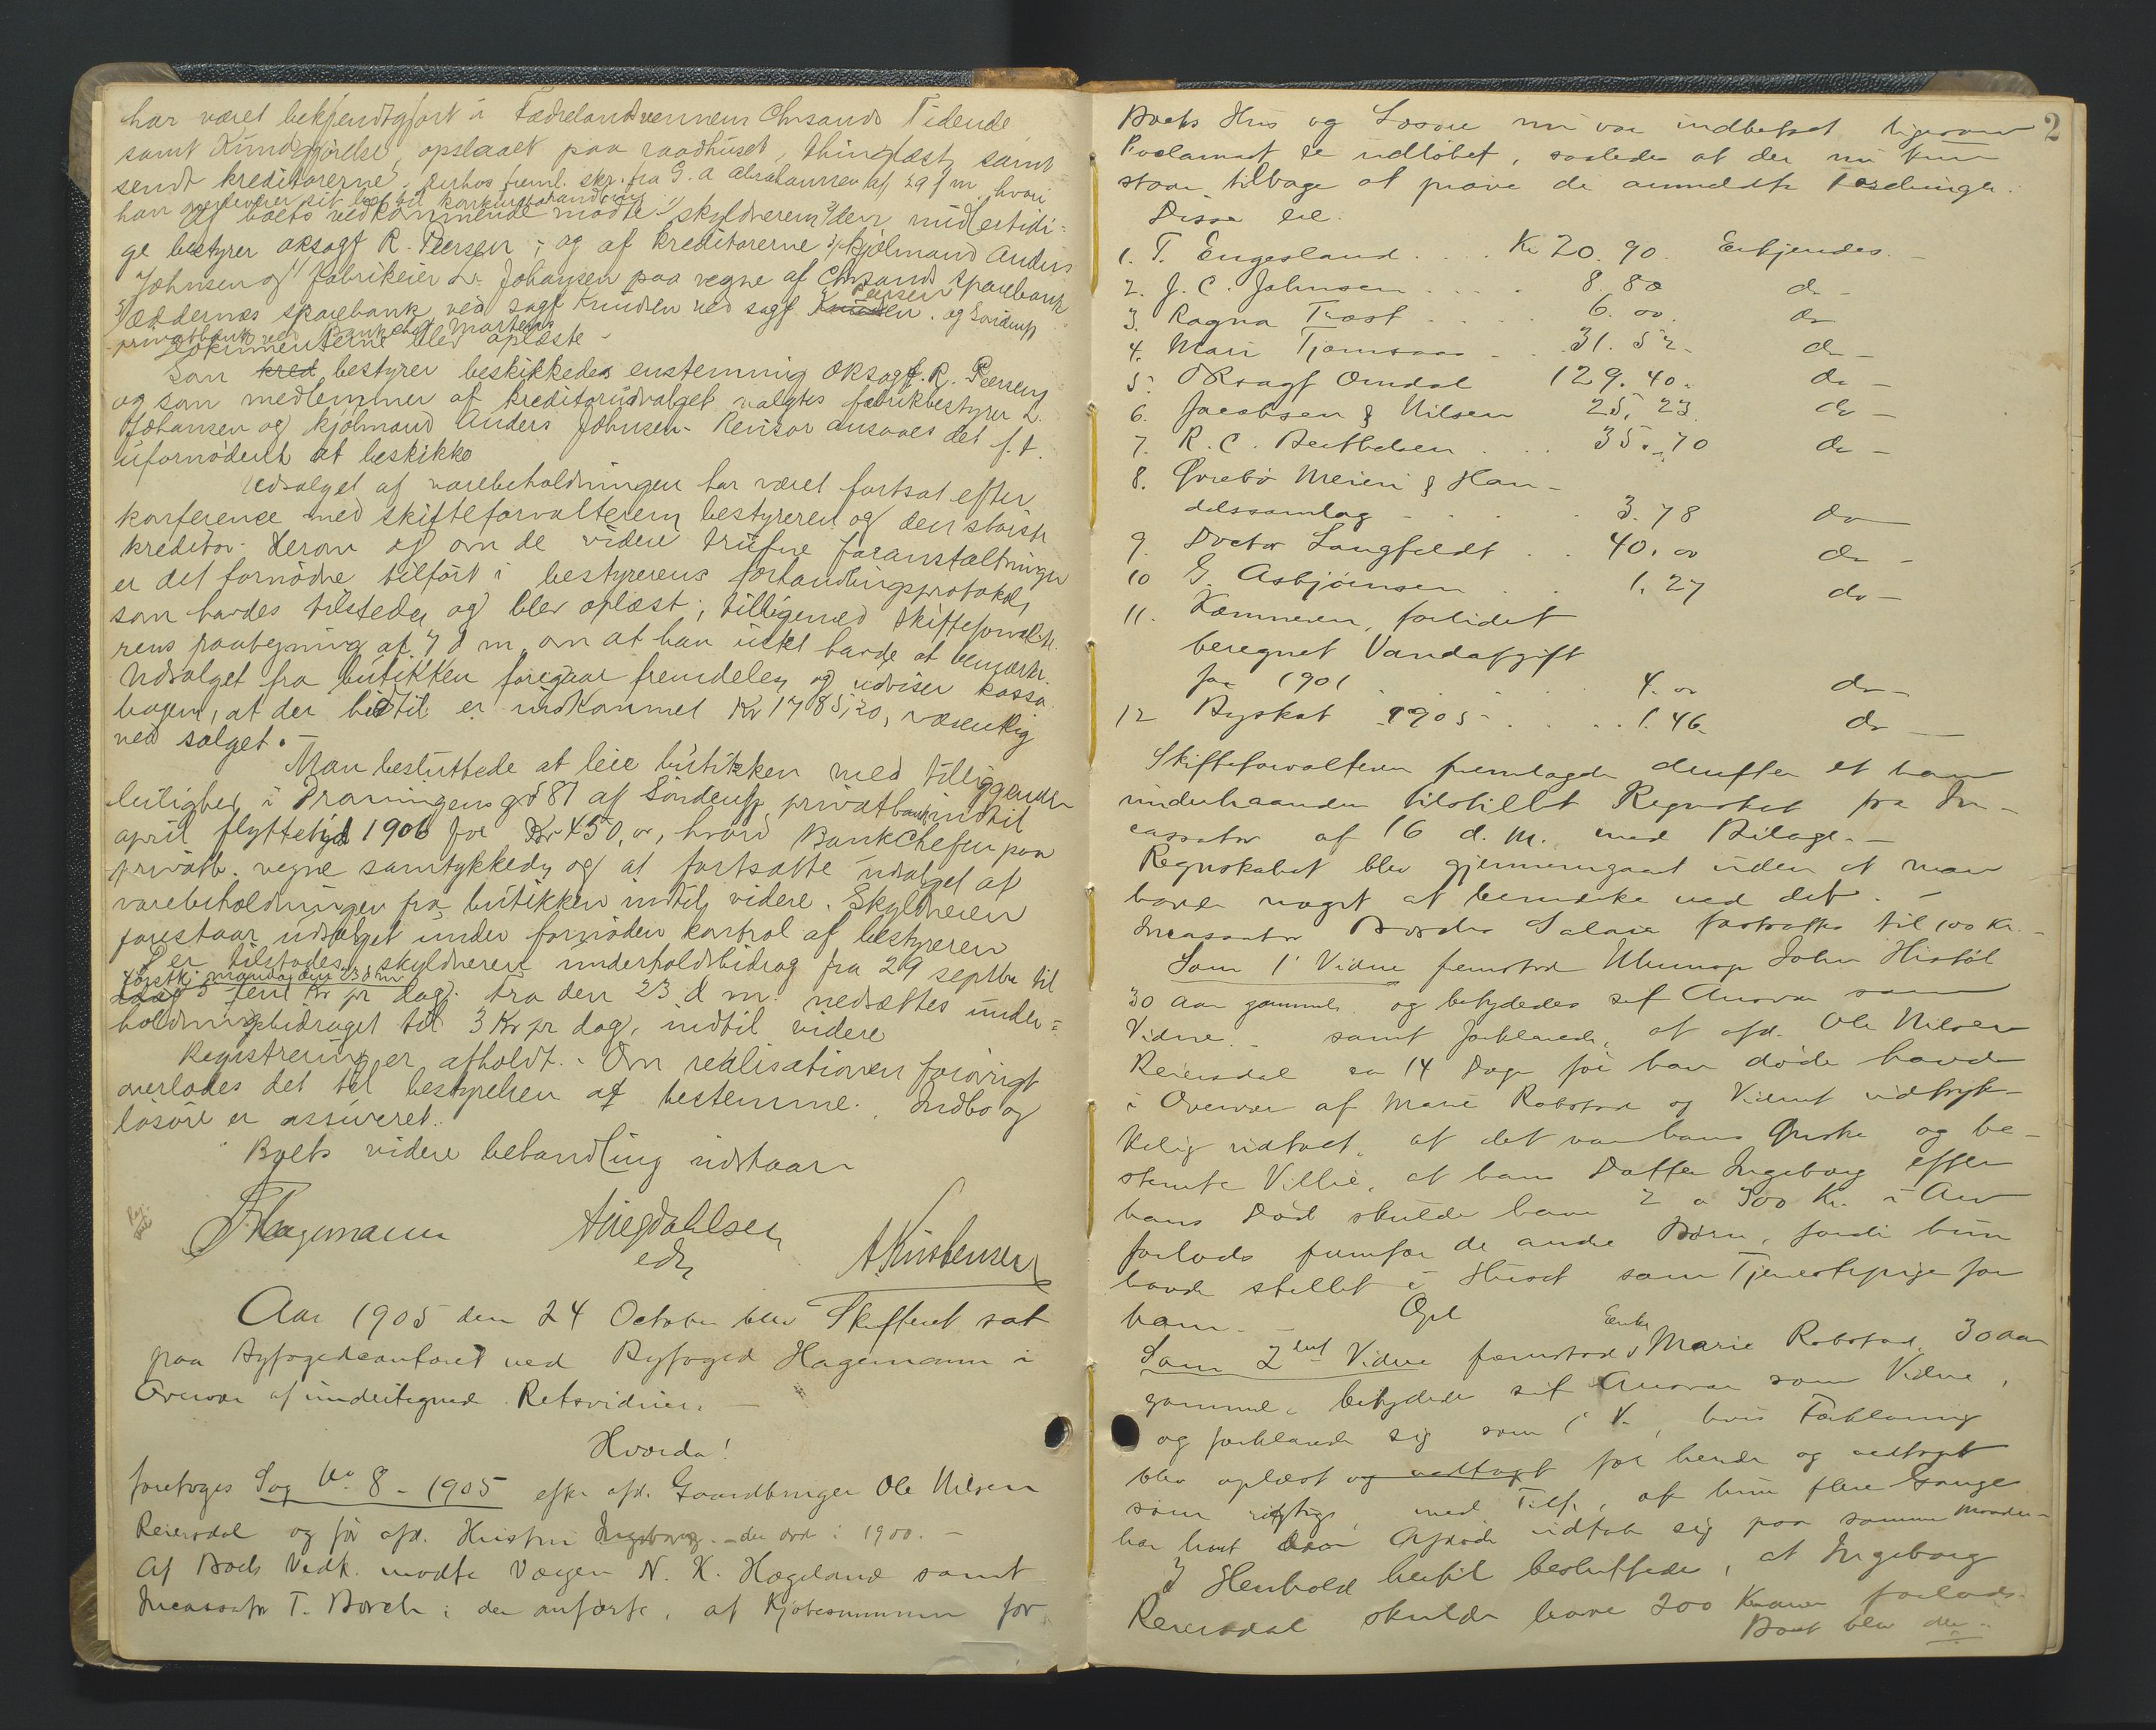 har været bekjendtgjort i Fædrelandsvennen Chrsands Tidende
samt Kundgjørelse, opslaaet paa raadhuset, thinglæst, samt
sendt kreditorerne. Derhos freml. skr. fra G. A. Abrahamsen af 29 f m hvori
han overleverer sit bo til konkursbehandling
Af boets vedkommende mødte: skyldneren, den midlertidi-
ge bestyrer oksagf R. Peersen; og af kreditorerne kjøbmand Anders
Johnsen og fabrikeier L. Johansen paa vegne af Chrsands sparebank
Oddernæs sparebank ved sagf Knudsen ved sagf Peersen og Sønden
privatbank ved Bankchef Martens
Dokumenterne blev oplæste -
Som kred bestyrer beskikkedes enstemmig oksagf. R. Peersen
og som medlemmer af kreditorudvalget valgtes fabrikbestyrer L.
Johansen og kjøbmand Anders Johnsen. Revisor ansaaes det f. t.
ufornødent at beskikke
Udsalget af varebeholdningen har været fortsat efter
konference med skifteforvalteren, bestyreren og den største
kreditor. Herom og om de videre trufne foranstaltninger
er det fornødne tilført i bestyrerens forhandlingsprotokol,
som havdes tilstede, og blev oplæst; tilligemed skifteforvalte-
rens paategning af 7 d m om at han intet havde at bemærke.
Udsalget fra butikken foregaar fremdeles, og udviser kassa
bogen, at der hidtil er indkommet Kr 1785,20, væsentlig
ved salget. -
Man besluttede at leie butikken med tilliggende
leilighed i Dronningens gd 81 af Søndenf. privatbank indtil
april flyttetid 1906 for Kr 450,00, hvori Bankchefen paa
privatb. vegne samtykkede, og at fortsætte udsalget af
varebeholdningen fra butikken indtil videre. Skyldneren
forestaar udsalget under fornøden kontrol af bestyreren
Der tilstodes skyldneren underholdsbidrag fra 29 septbr til
førstk. mandag den 23 d m
idag 5 fem Kr pr dag. Fra den 23 d m. nedsættes under-
holdningsbidraget til 3 Kr pr dag, indtil videre
Registrering er afholdt. - Om realisationen forøvrigt
overlodes det til bestyrelsen at bestemme. Indbo og
løsøre er assureret.
Boets videre behandling udstaar
Hagemann
A Kristensen
Aar 1905 den 24 October blev Skifteret sat
paa Byfogedcontoret ved Byfoged Hagemann i
Overvær af undertegnede Retsvidner. -
Hvorda!
foretoges Sag No 8 - 1905 efter afd. Gaardbruger Ole Nilsen
Reiersdal og før afd. Hustru Ingeborg - der døde i 1900. -
Af Boets Vedk. mødte Værgen N. K. Hægeland samt
Incassator T. Borch: der anførte, at Kjøbesummen for
2
Boets Hus og Løsøre nu var indbetalt ligesom
Proclamat er udløbet, saaledes at der nu kun
staar tilbage at prøve de anmeldte Fordringer.
Disse ere.
1. T. Engesland . . . Kr 20. 90. Erkjendes. -
2. J. C. Johnsen . . . . 8. 80 do -
3. Ragna Trast . . . . 6. 00. do
4. Mari Tjomsaas - . . 31. 52. do -
5. ORsagf Omdal 129. 40. do -
6. Jacobsen & Nilsen 25. 23. do -
7. R. C. Berthelsen . . . 35. 70 do -
8. Øvrebø Meieri & Han-
delssamlag - . . . . 3. 78 do
9. Doctor Langfeldt . . 40. 00 do -
10 G. Asbjørnsen . . 1. 27 do -
11. Kæmneren, forlidet
beregnet Vandafgift
for 1901 . . . . . 4. 00 do -
12 Byskat 1905 - . . . . 1. 46. do -
Skifteforvalteren fremlagde derefter et ham
underhaanden tilstillet Regnskab fra In-
cassator af 16 d. M. med Bilage. -
Regnskabet blev gjennemgaaet uden at man
havde noget at bemærke ved det. -
Incassator Borchs Salair fastsattes til 100 Kr. -
Som 1' Vidne fremstod John
30 aar gammel, og betydedes sit Ansvar som
Vidne. - samt forklarede, at afd. Ole Nilsen
Reiersdal ca 14 Dage før han døde havde
i Overvær af Marie Robstad og Vidnet udtryk-
kelig udtalt, at det var hans Ønske og be-
stemte Villie, at hans Datter Ingeborg efter
hans Død skulde have 2 a 300 Kr. i Arv
forlods fremfor de andre Børn, fordi hun
havde stellet i Huset som Tjenestepige for
ham. - Opl
Som 2det Vidne fremstod Enke Marie Robstad, 30 aar
gammel, betydedes sit Ansvar som Vidne,
og forklarede sig som 1' V., hvis Forklaring
blev oplæst og vedtaget for hende og vedtaget
som rigtig, med Tilf., at hun flere Gange
har hørt den Afdøde udtale sig paa samme Maade. -
I Henhold hertil besluttedes, at Ingeborg
Reiersdal skulde have 200 Kroner forlods.
Boet blev der-